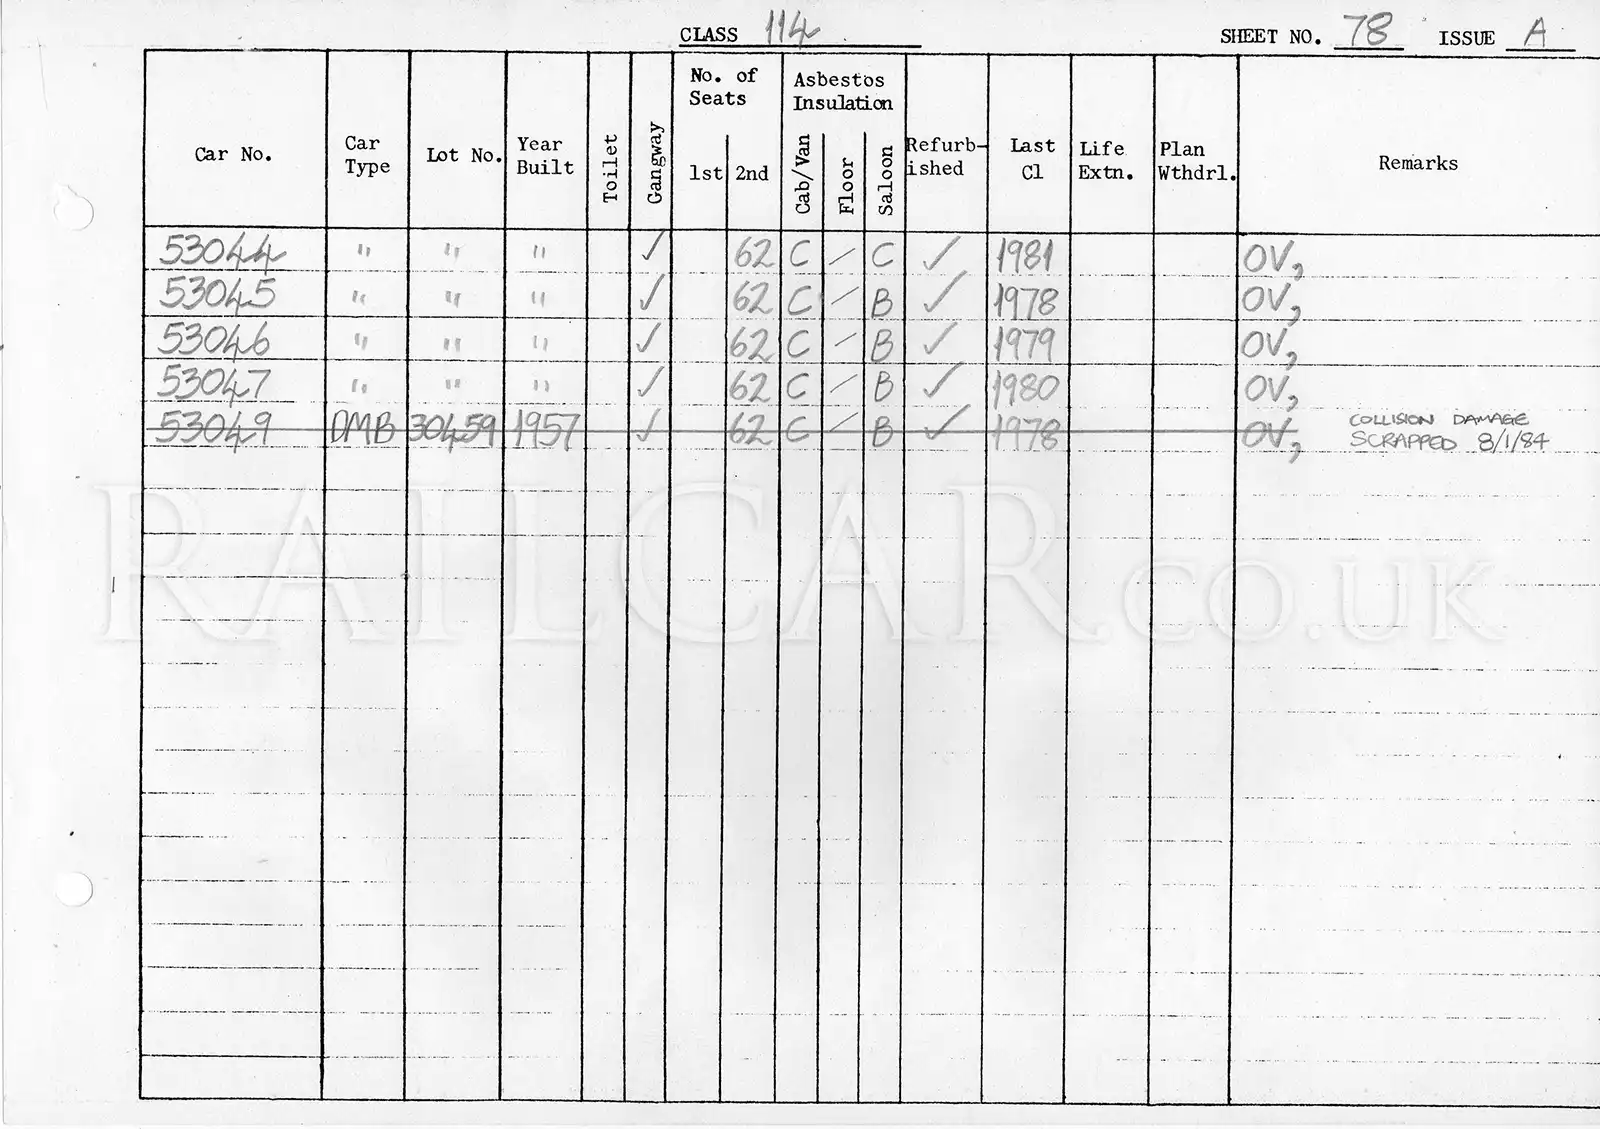 CLASS 114 SHEET NO. 78 ISSUE A
Car No. Car Type Lot No. Year Built Toilet Gangway No. of Seats 1st 2nd Asbestos Insulation Cab/Van Floor Saloon Refurb-ished Last Cl Life Extn. Plan Wthdrl. Remarks
53044 " " " ✓ 62 C / C ✓ 1981 OV,
53045 " " " ✓ 62 C / B ✓ 1978 OV,
53046 " " " ✓ 62 C / B ✓ 1979 OV,
53047 " " " ✓ 62 C / B ✓ 1980 OV,
53049 DMB 30459 1957 ✓ 62 C / B ✓ 1978 OV, COLLISION DAMAGE
SCRAPPED 8/1/84
RAILCAR.CO.UK